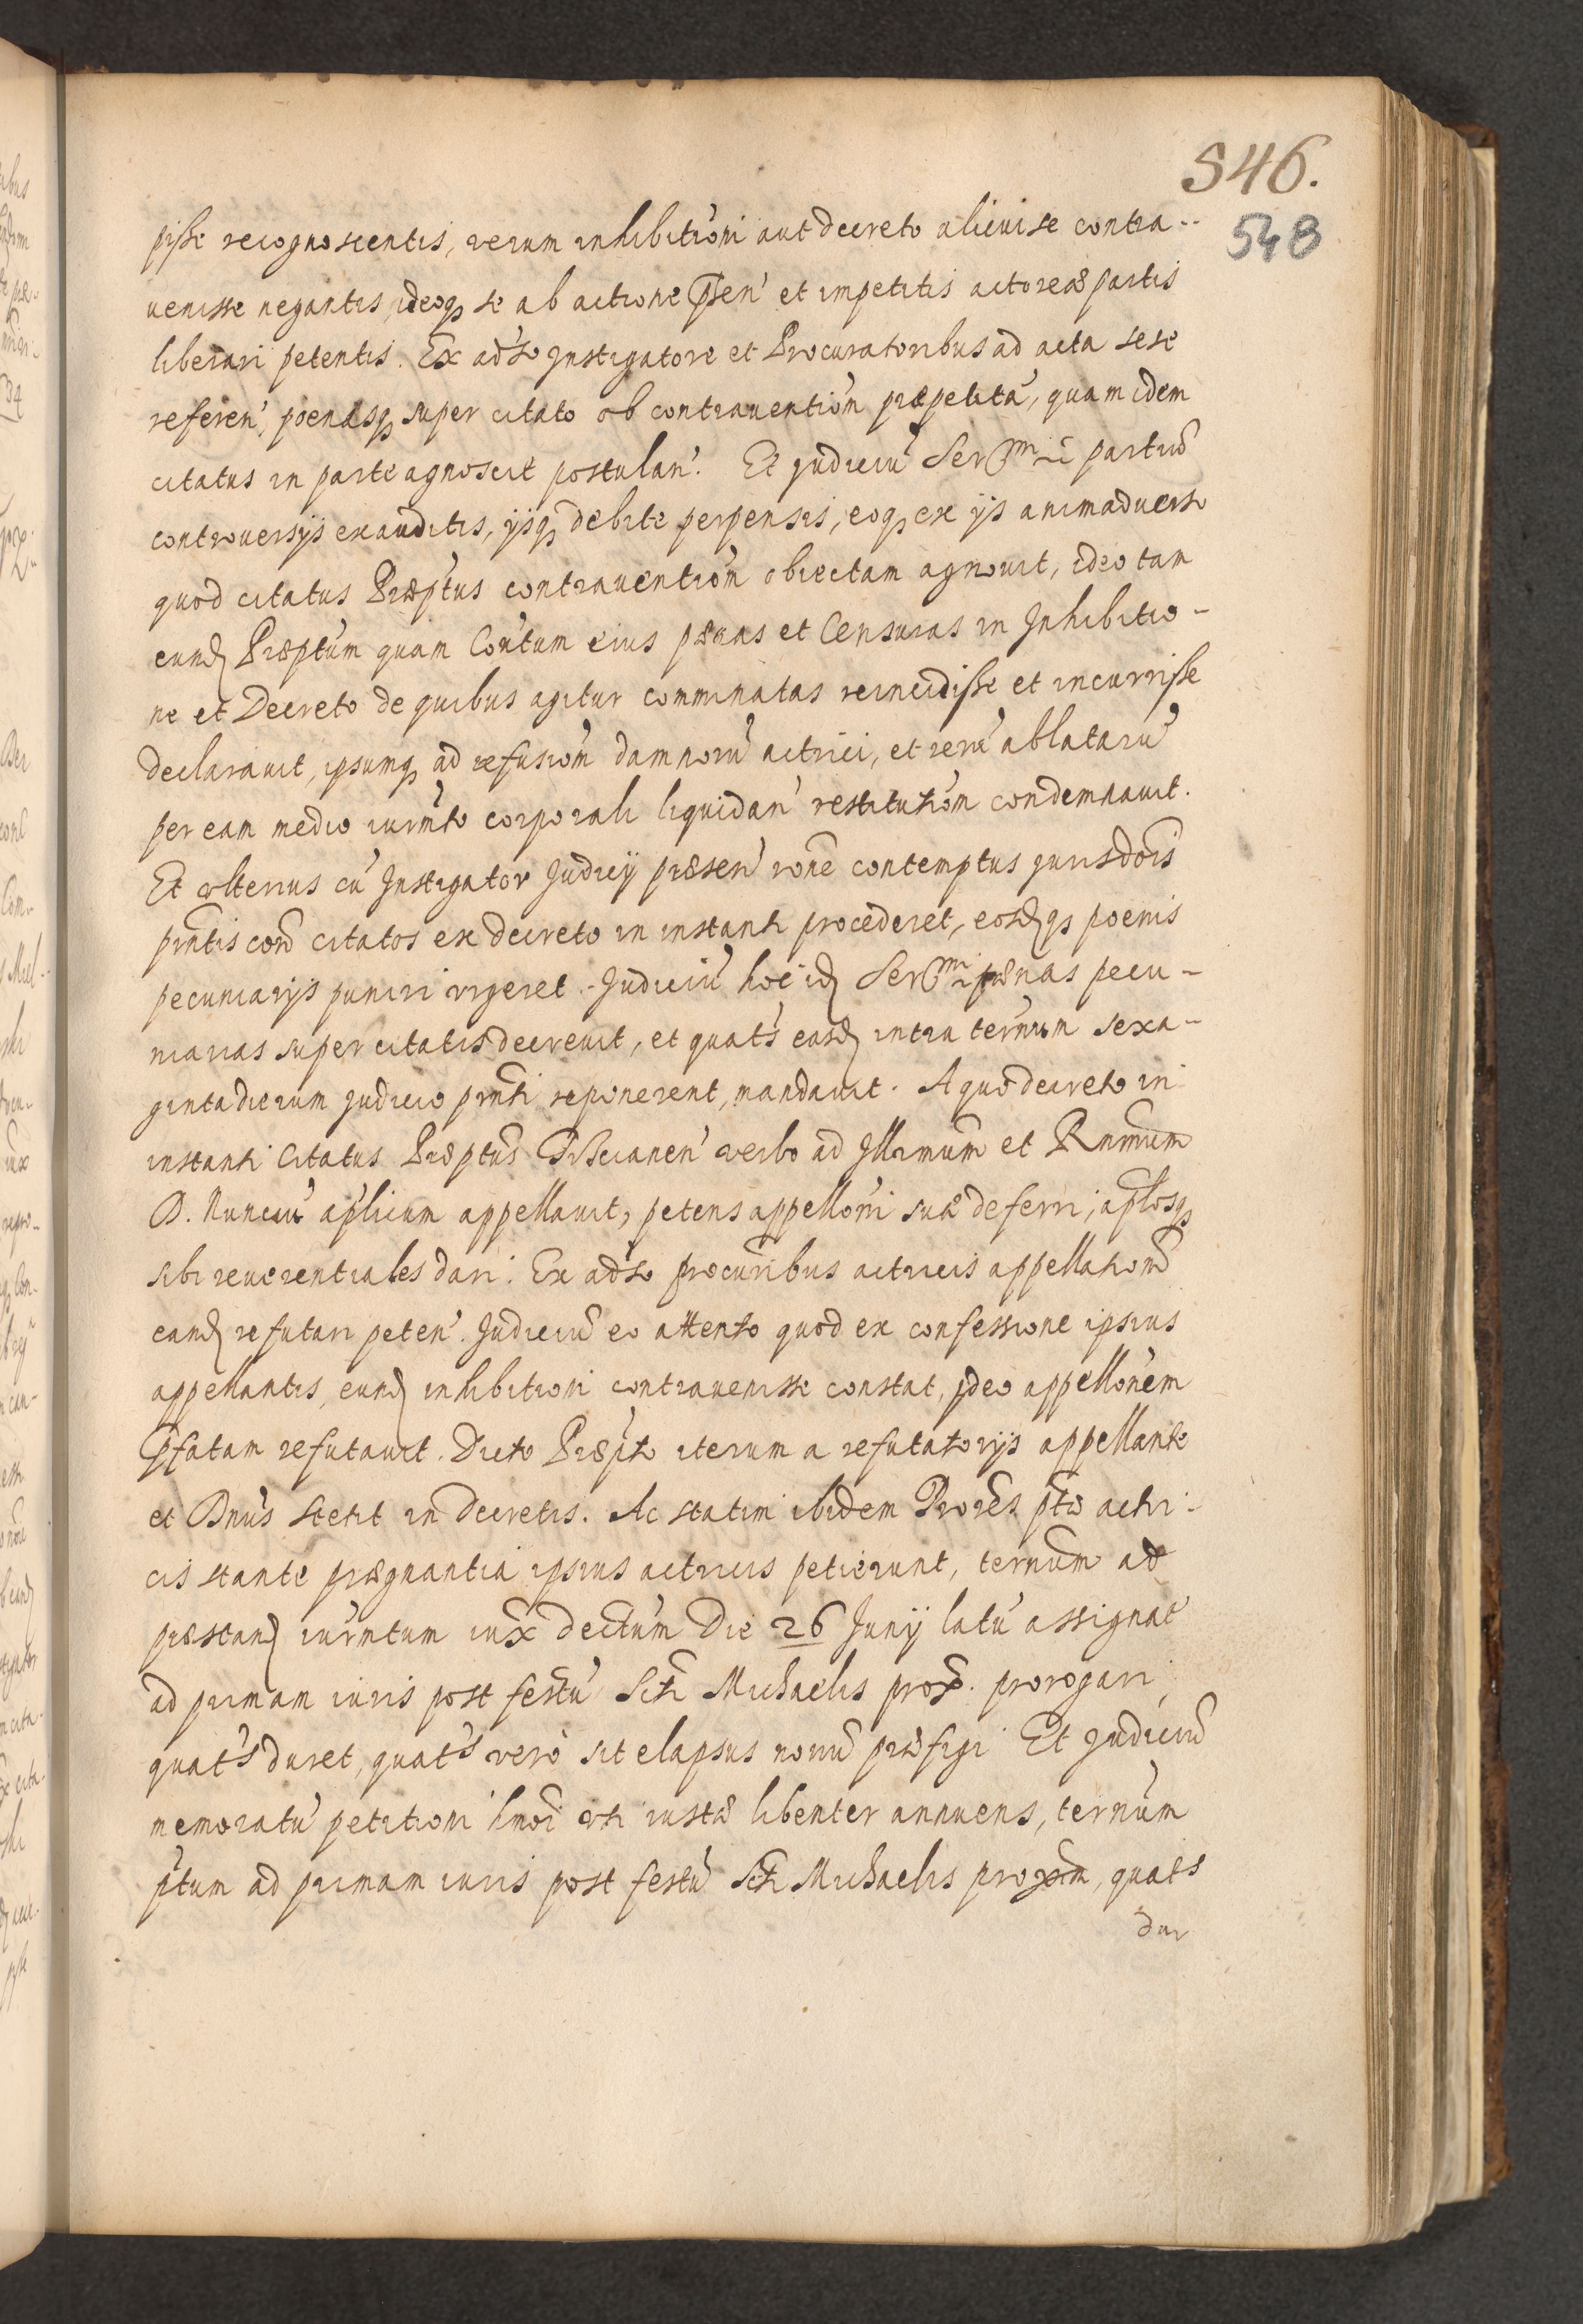 546.
548
pisse recognoscentis, verum inhibitioni aut decreto alicui se contra-
uenisse negantis, ideoq se ab actione p̃sen' et impetitis actoreæ partis
liberari petentis. Ex adũso Instigatore et Procuratoribus ad acta sese
referen', poenasq super citato ob contrauentiõn præpetitã, quam idem
citatus in parte agnoscit postulan'. Et Judiciũ Serm̃i partiũ
controuersijs exauditis, ijsq debite perpensis, eoq ex ijs animaduerso
quod citatus Præptus contrauentiõn obiectam agnouit, ideo tam
eund Præptũm quam Conũtum eius pænas et Censuras in Inhibitio-
ne et Decreto de quibus agitur comminatas reincidisse et incurrisse
declarauit, ipsumq ad refusiõm damnorũ actrici, et rerũ ablatarũ
per eam medio iurm̃to corporali liquidan' restitutiõm condemnauit.
Et vlterius cũ Instigator Judicij præsen' rõne contemptus jurisdõis
pñtis cõrd citatos ex decreto in instanti procederet, eosdq poenis
pecuniarijs puniri vrgeret. Judiciũ hoc id Serm̃i pænas pecu-
niarias super citatis decreuit, et quat's easd intra ternũm sexa-
ginta dierum judicio pñti reponerent, mandauit. A quo decreto in
instanti Citatus Præptus verbo ad Illr̃mum et Rñmum
D. Nunciũ aplicum appellauit, petens appellõni suæ deferri, aplosq
sibi reuerentiales dari. Ex adũso procurĩbus actricis appellatiõm
eand refutari peten'. Judiciũ eo attento quod ex confessione ipsius
appellantis, eund inhibitioni contrauenisse constat, ideo appellõnem
p̃fatam refutauit. Dicto Præpto iterum a refutatorijs appellante
et Dñus stetit in decretis. Ac statim ibidem Prõres pte actri-
cis stante prægnantia ipsius actricis petierunt, ternũm ad
præstand iurm̃tum iux̃ decretũm Die 26 Junij latũ assignat'
ad primam iuris post festũ Sti Michaelis prox. prorogari,
quat's duret, quat's verò sit elapsus nouũ præfigi Et Judiciũ
memoratũ petitioni hm̃oi vti iustæ libenter annuens, ternũm
p̃tum ad primam iuris post festũ Sti Michaelis proxim̃, quat's
dur